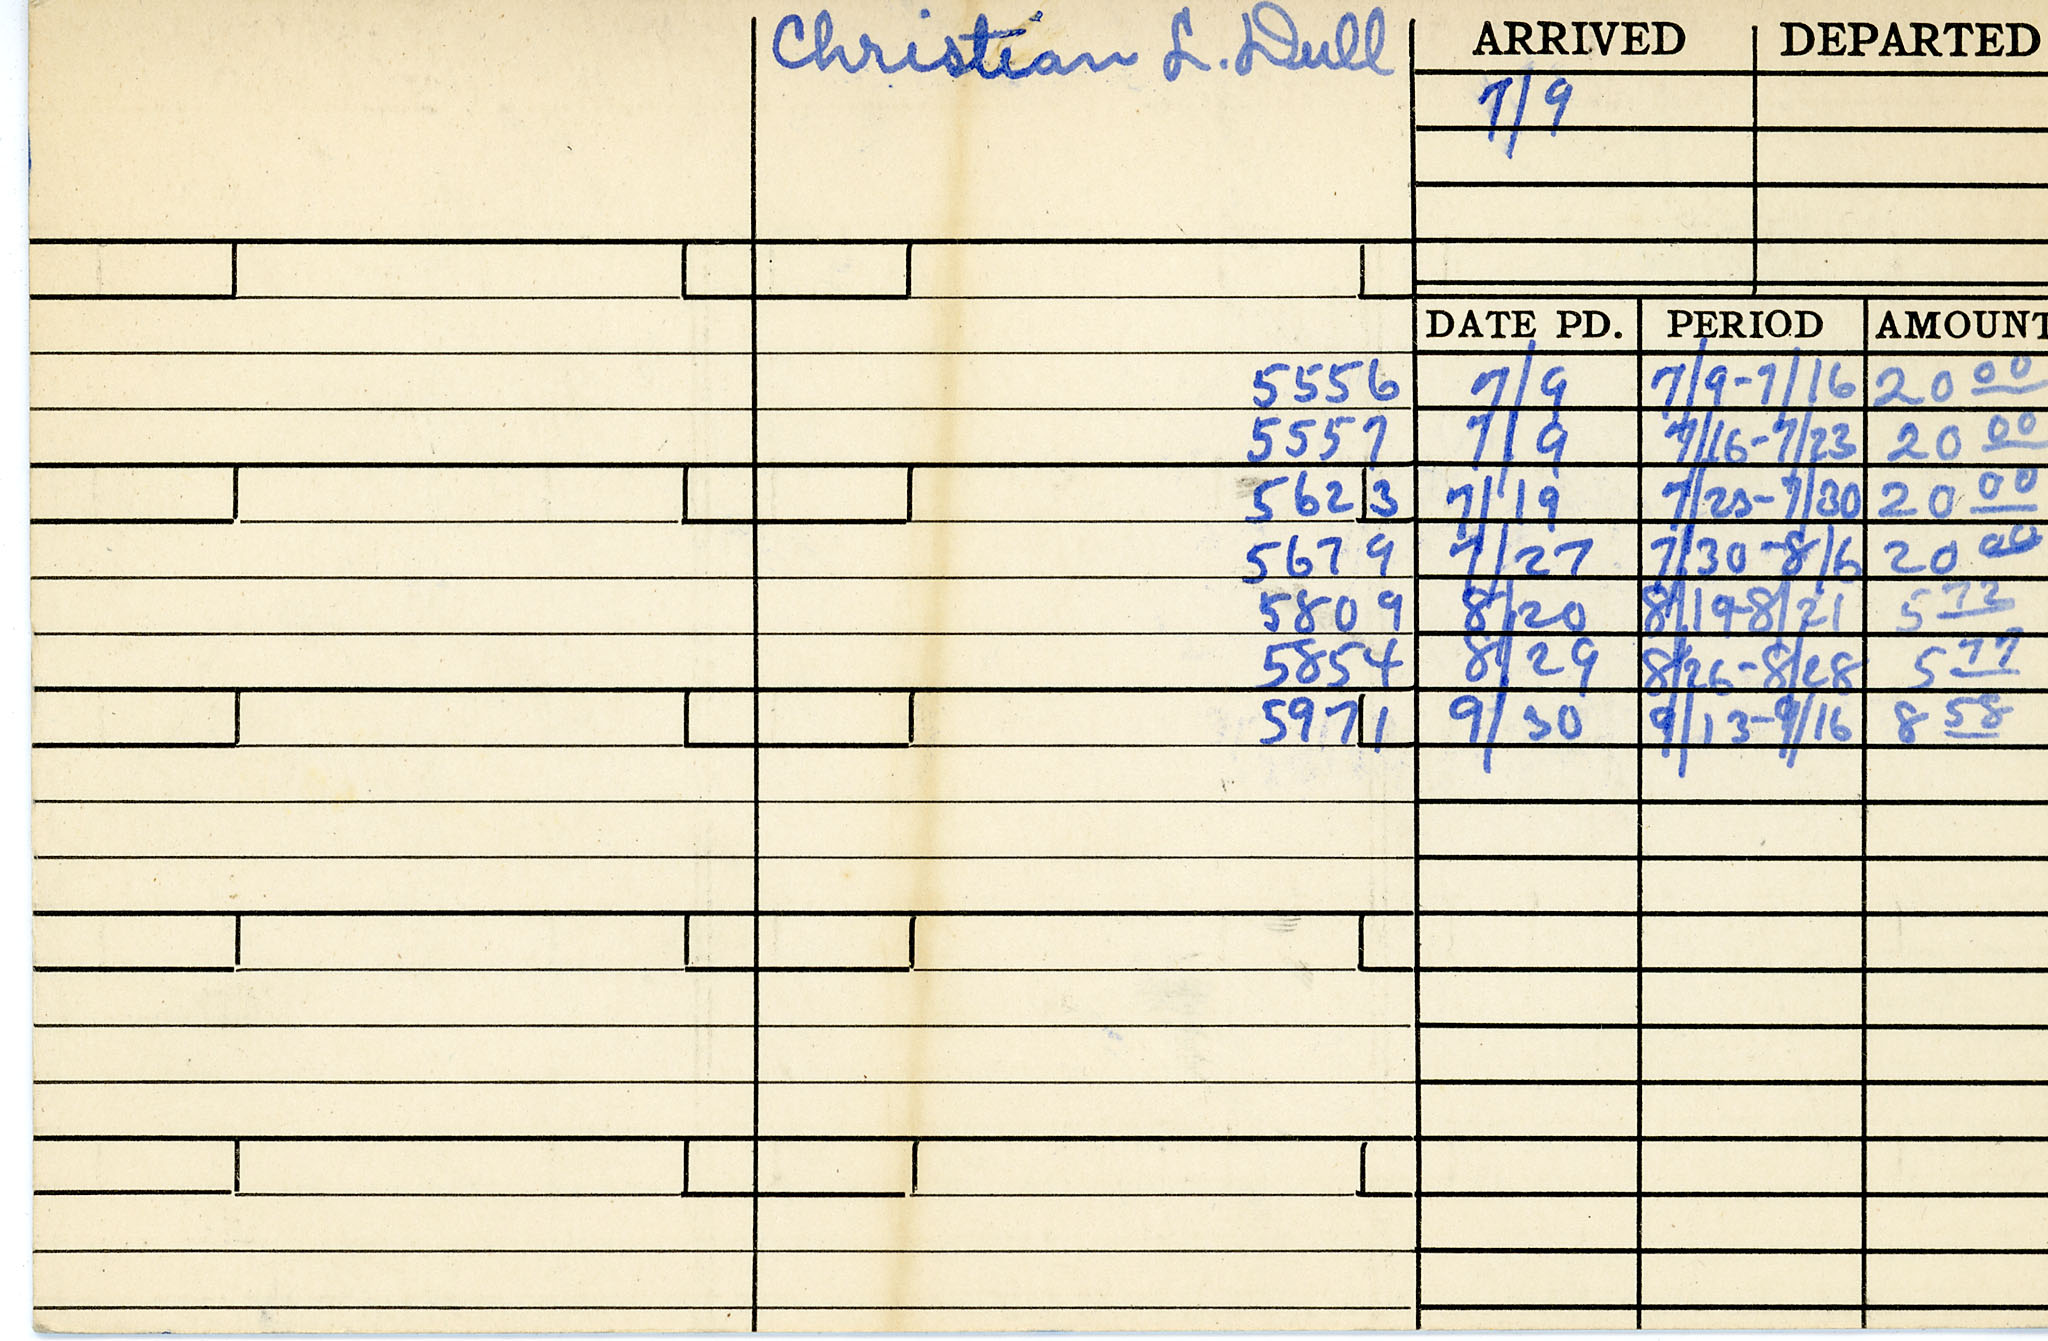 Christian L. Dull ARRIVED DEPARTED
7/9
DATE PD. PERIOD AMOUNT
5556 7/9 7/9-7/16 20 00
5557 7/9 7/16-7/23 20 00
5623 7/19 7/23-7/30 20 00
5679 7/27 7/30-8/6 20 00
5809 8/20 8/19-8/21 5 72
5854 8/29 8/26-8/28 5 77
5971 9/30 9/13-9/16 8 58